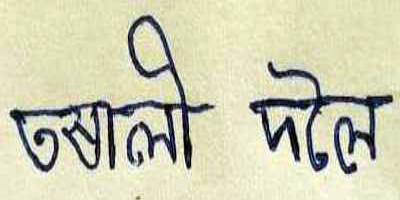 তৰালী দলৈ